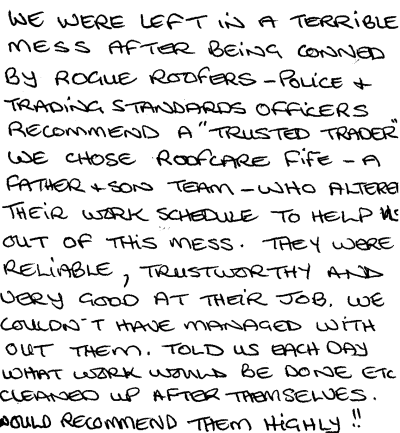 WE WERE LEFT IN A TERRIBLE
MESS AFTER BEING CONNED
BY ROGUE ROOFERS - POLICE +
TRADING STANDARDS OFFICERS
RECOMMEND A "TRUSTED TRADER"
WE CHOSE ROOFCARE FIFE - A
FATHER + SON TEAM - WHO ALTERE
THEIR WORK SCHEDULE TO HELP US
OUT OF THIS MESS. THEY WERE
RELIABLE, TRUSTWORTHY AND
VERY GOOD AT THEIR JOB. WE
COULDN'T HAVE MANAGED WITH
OUT THEM. TOLD US EACH DAY
WHAT WORK WOULD BE DONE ETC
CLEANED UP AFTER THEMSELVES.
WOULD RECOMMEND THEM HIGHLY!!